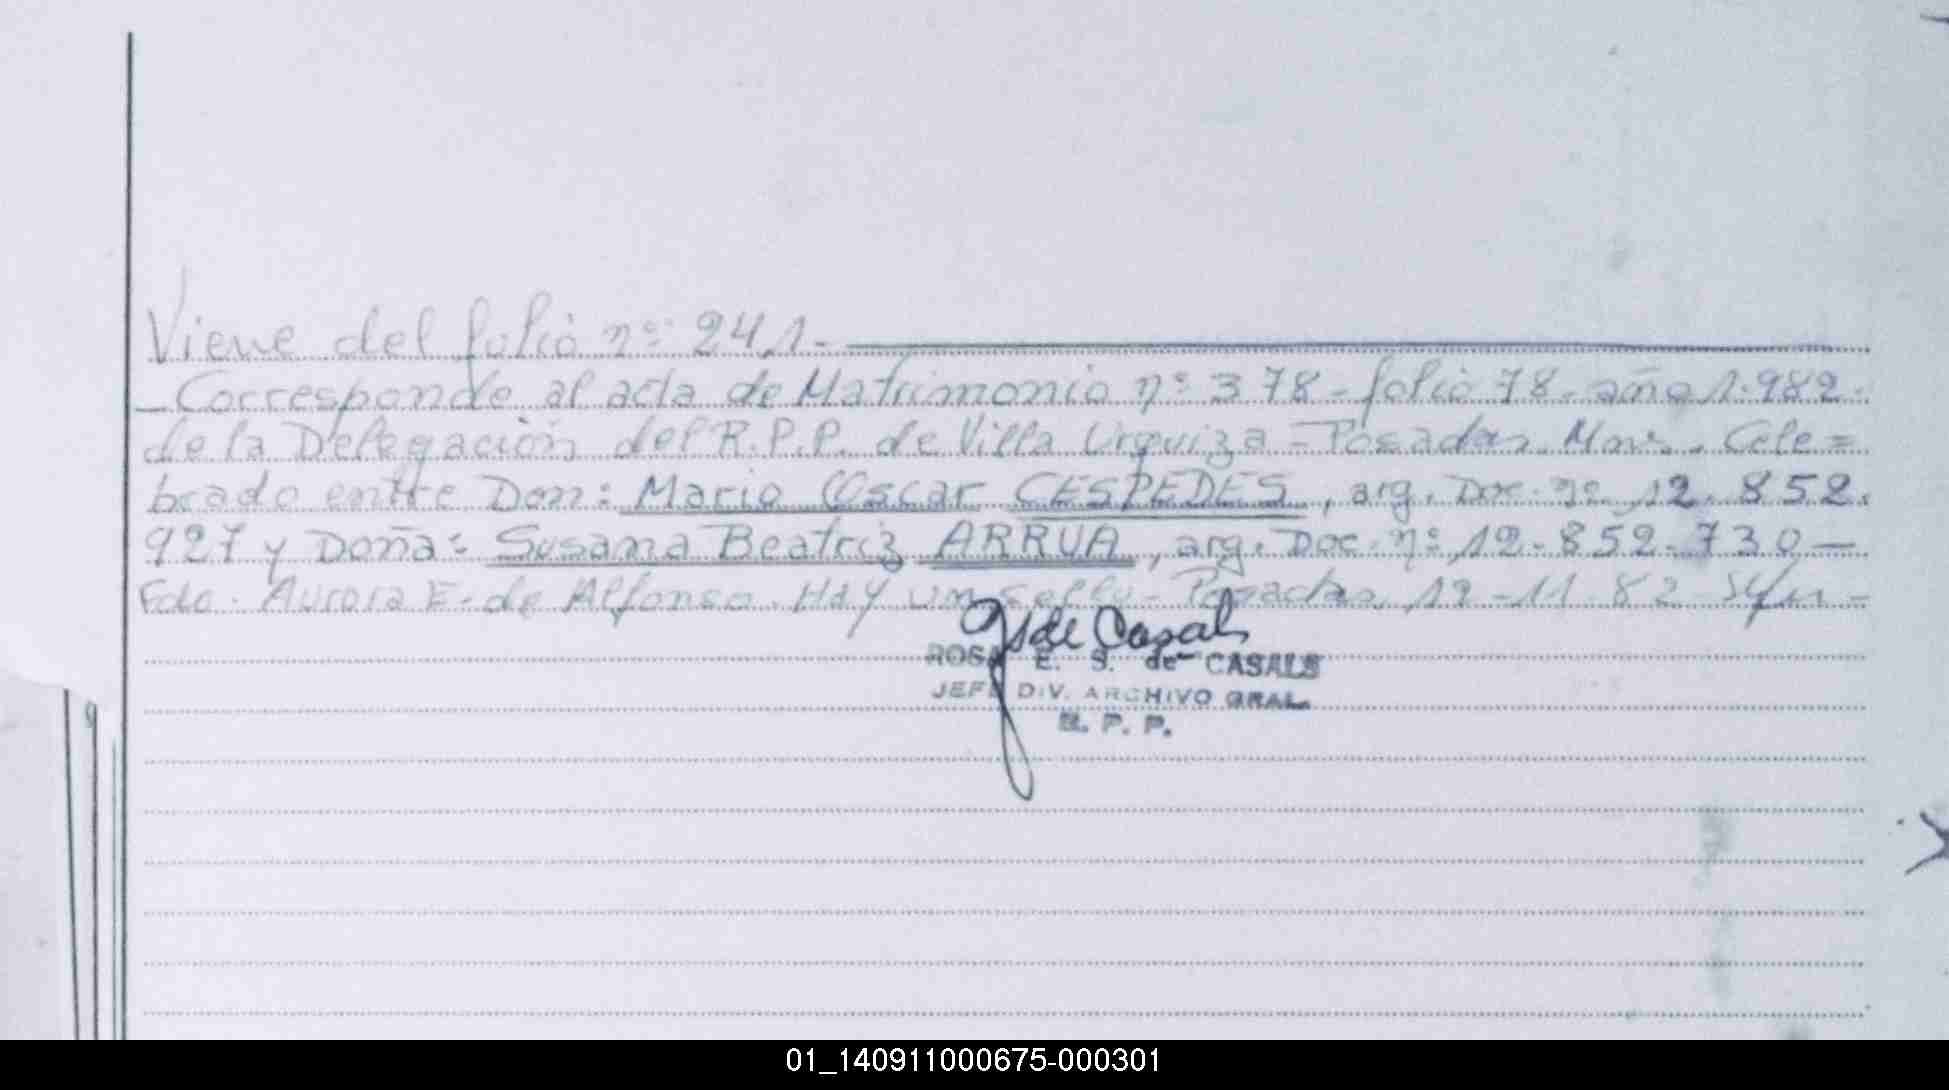 Viene del folio nº: 241.
_Corresponde al acta de Matrimonio nº 378 - folio 78 - año 1.982.
de la Delegación del R.P.P. de Villa Urquiza = Posadas. Mnes. Cele=
brado entre Don: Mario Oscar CESPEDES, arg. Doc. nº 12.852.
927 y Doña: Susana Beatriz ARRUA, arg. Doc. nº 12.852.730—
Fdo. Aurora E. de Alfonso. Hay un sello - Posadas, 12-11-82
de Casals
ROSA E. S. de CASALS
JEFE DIV. ARCHIVO GRAL.
R. P. P.
01_140911000675-000301